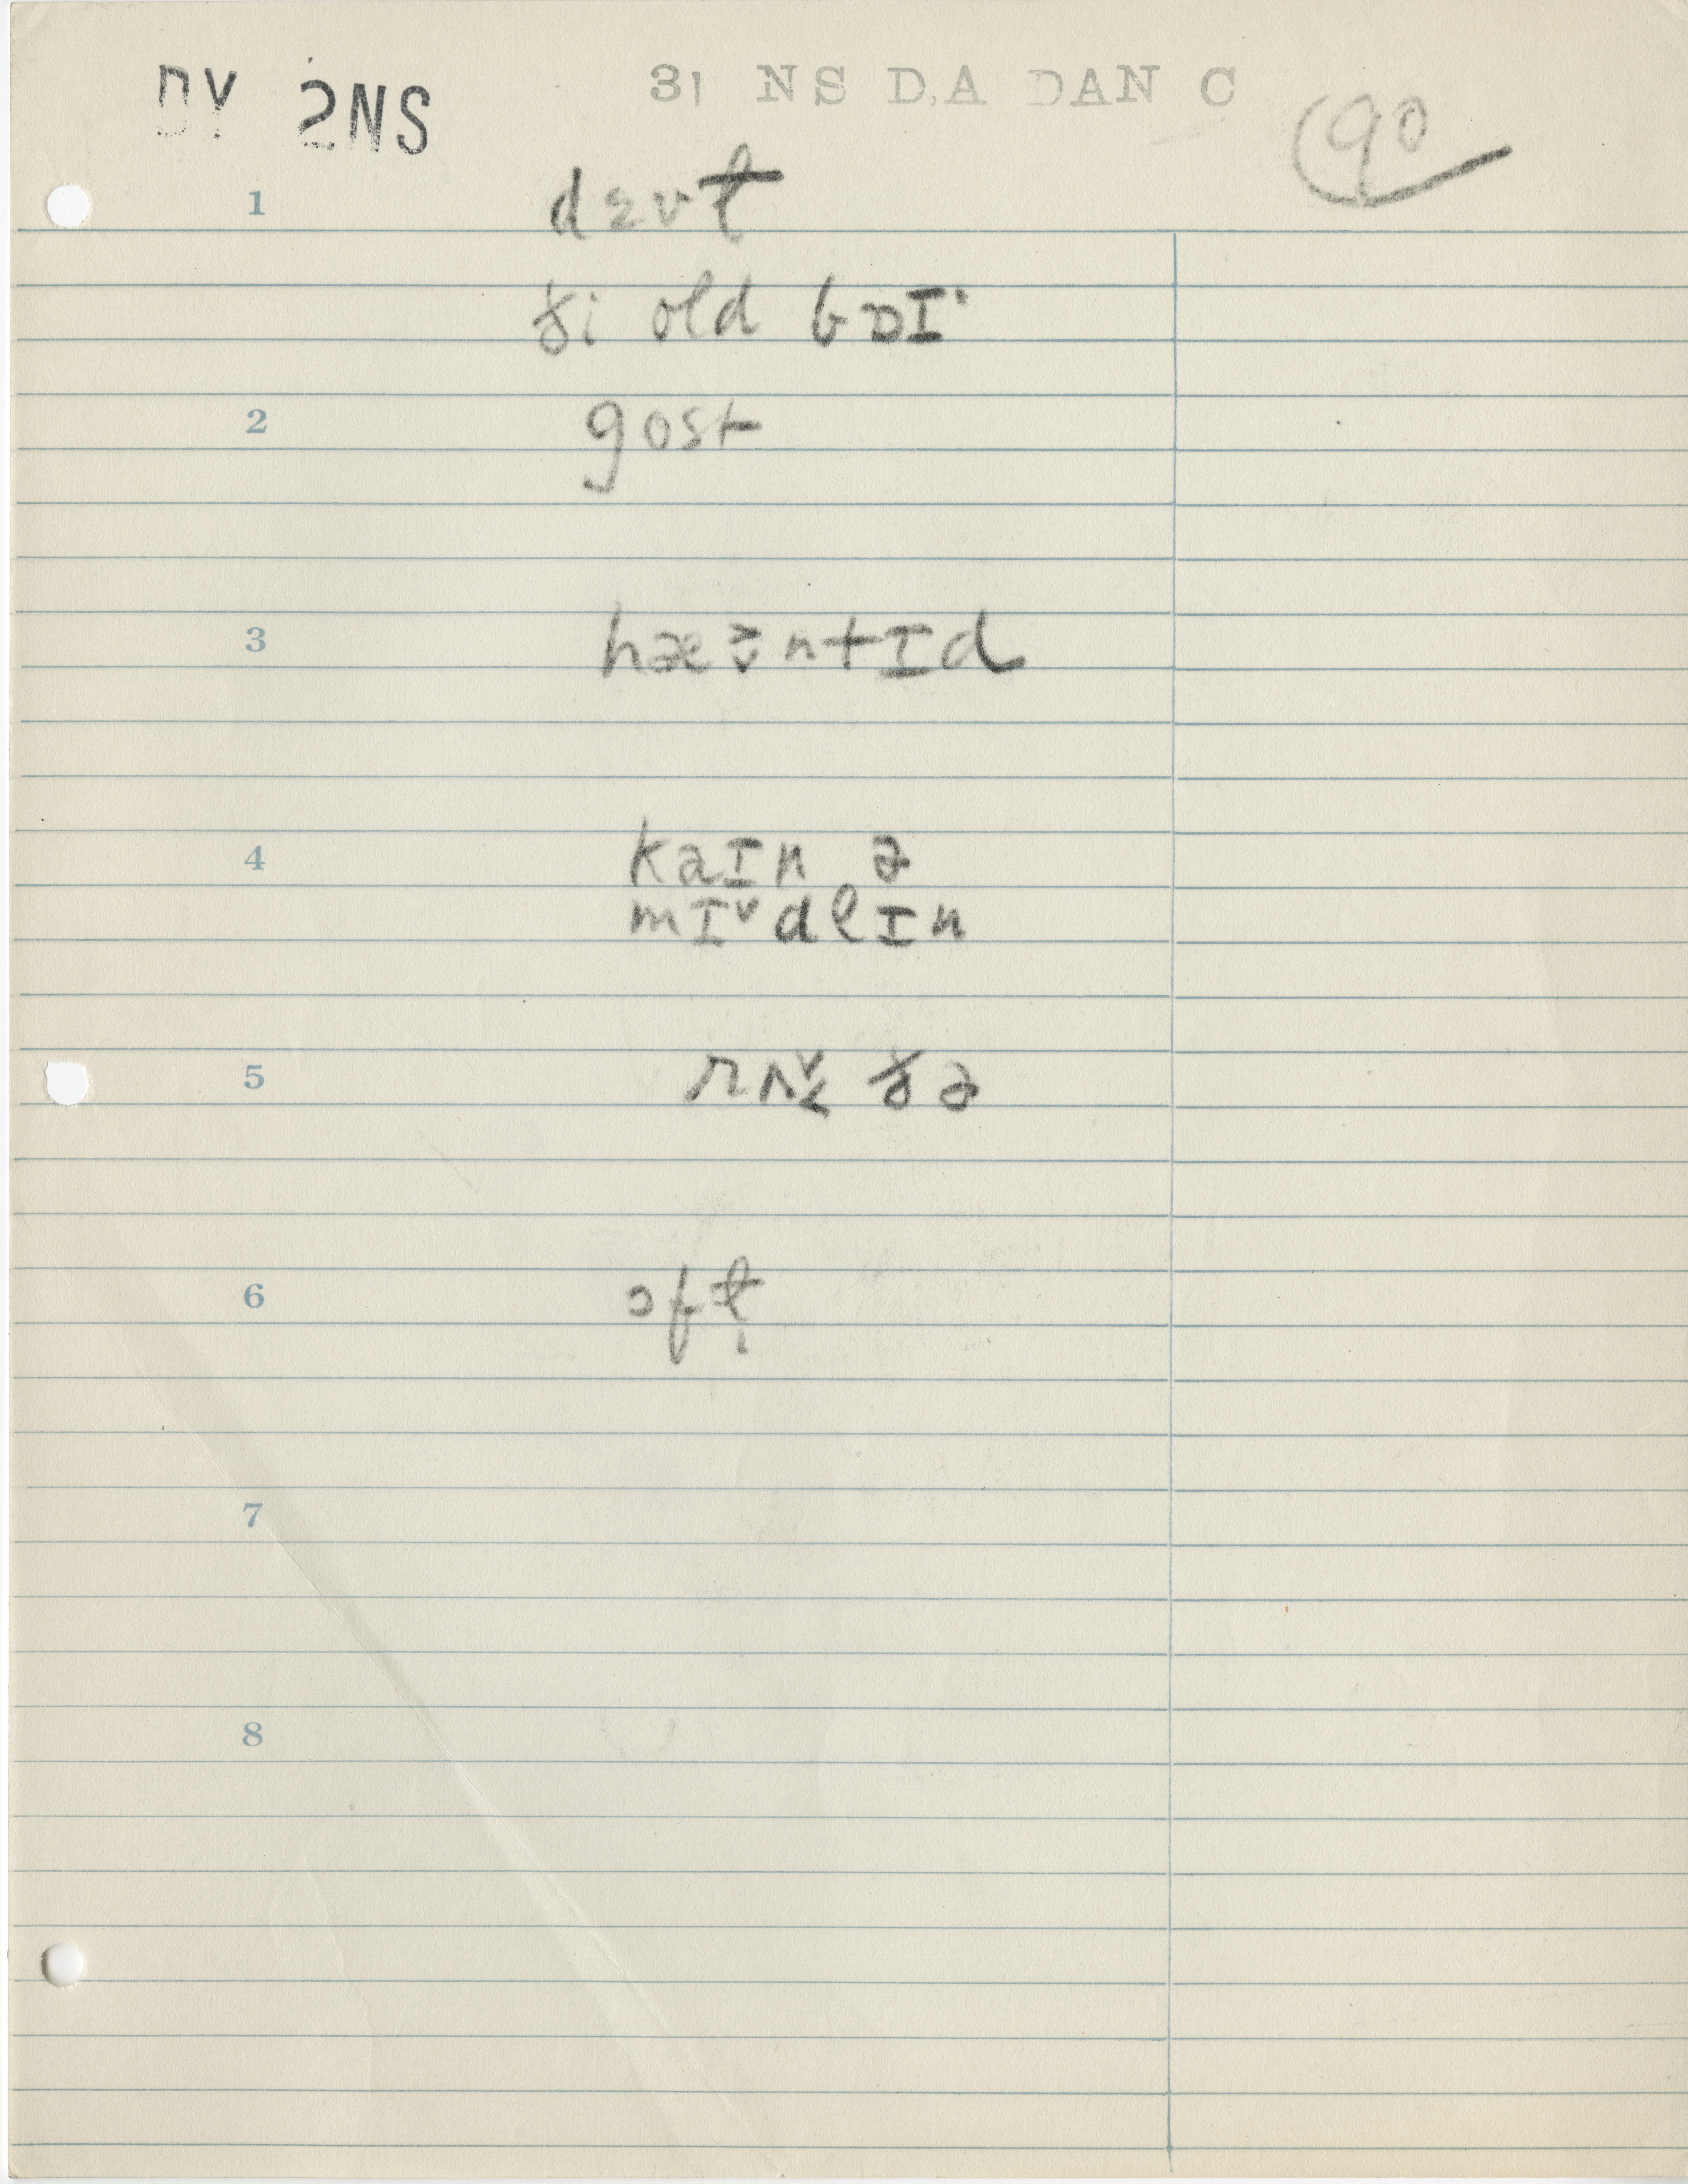 DY 2NS
31 NS D,A DAN C
90
1 dɛvɫ
ði old bɒɪ˙
2 gost
3 hæ̬˃ntɪd
4 kaɪn ə
mɪ˅dlɪn
5 rʌ̬˂ ðə
6 ɔfɫ̩
7
8